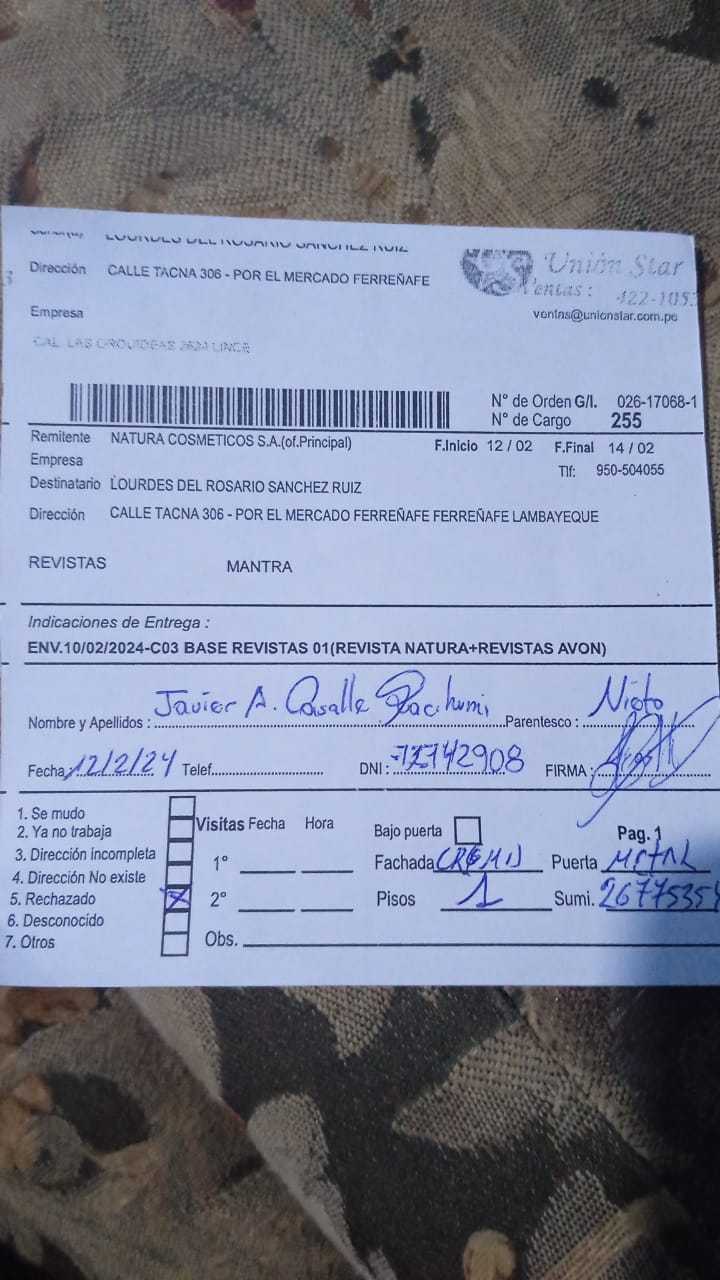 Señor(a) LOURDES DEL ROSARIO SANCHEZ RUIZ
Dirección CALLE TACNA 306 - POR EL MERCADO FERREÑAFE
Unión Star
Ventas : 422-105
Empresa
ventas@unionstar.com.pe
CAL. LAS ORQUIDEAS 2624 LINCE
N° de Orden G/I. 026-17068-1
N° de Cargo 255
Remitente NATURA COSMETICOS S.A.(of.Principal)
F.Inicio 12 / 02 F.Final 14 / 02
Empresa
Tlf: 950-504055
Destinatario LOURDES DEL ROSARIO SANCHEZ RUIZ
Dirección CALLE TACNA 306 - POR EL MERCADO FERREÑAFE FERREÑAFE LAMBAYEQUE
REVISTAS MANTRA
Indicaciones de Entrega :
ENV.10/02/2024-C03 BASE REVISTAS 01(REVISTA NATURA+REVISTAS AVON)
Nombre y Apellidos : Javier A. Parentesco : Nieto
Fecha 12/2/24 Telef. DNI : 72742908 FIRMA :
1. Se mudo
2. Ya no trabaja
3. Dirección incompleta
4. Dirección No existe
5. Rechazado X
6. Desconocido
7. Otros
Visitas Fecha Hora
1°
2°
Obs.
Bajo puerta Pag. 1
Fachada CREMA Puerta METAL
Pisos 1 Sumi. 2677535